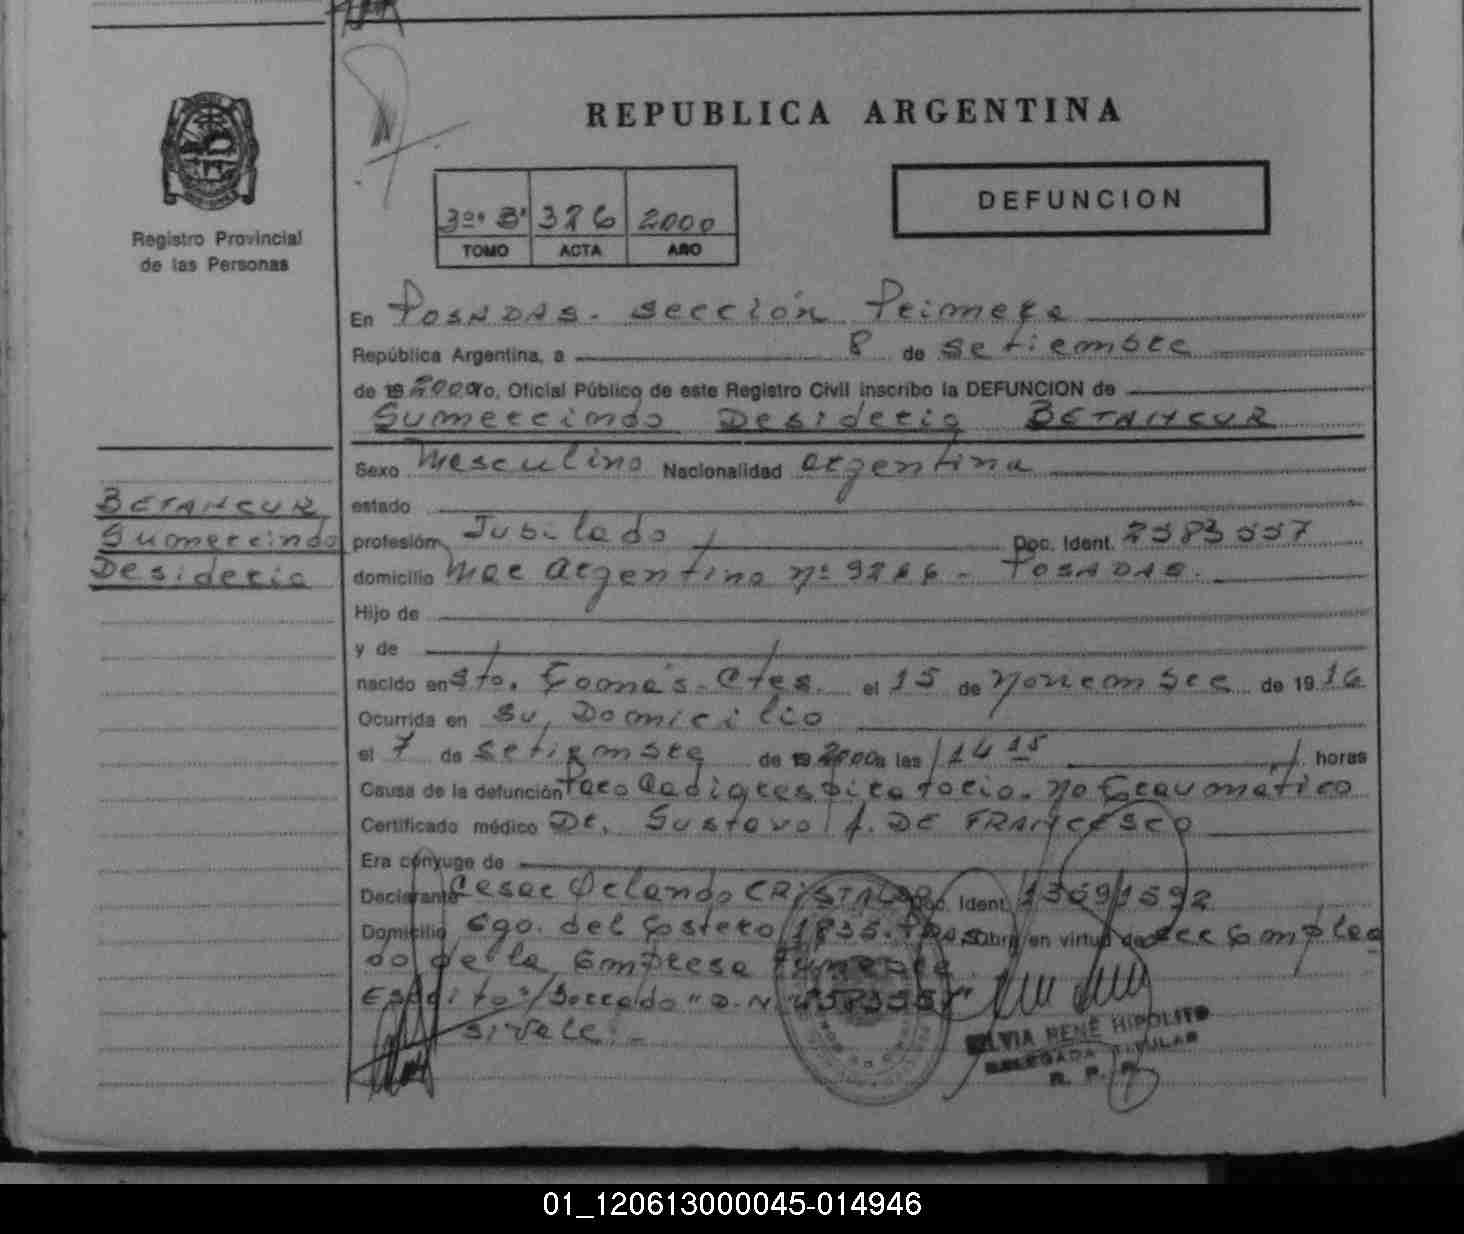 REPUBLICA ARGENTINA
Registro Provincial
de las Personas
3º. Bº 326 2000
TOMO ACTA AÑO
DEFUNCION
En Posadas. sección Primera
República Argentina, a 8 de Setiembre
de 19 2000 Yo, Oficial Público de este Registro Civil inscribo la DEFUNCION de
Gumercindo Desiderio BETANCUR
Sexo Masculino Nacionalidad argentina
BETANCUR
Gumercindo
Desiderio
estado
profesión Jubilado Doc. Ident. 2383557
domicilio Mar Argentino nº 9266 - POSADAS.
Hijo de
y de
nacido en Sto. Tomás - Ctes. el 15 de Noviembre de 1916
Ocurrida en su Domicilio
el 7 de setiembre de 19 2000 a las 14 15 horas
Causa de la defunción Paro Cardiorespiratorio. no traumático
Certificado médico Dr. Gustavo A. DE FRANCESCO
Era cónyuge de
Declarante Cesar Orlando Doc. Ident. 13691592
Domicilio del 1835. Obra en virtud de ser emplea
do de la Empresa
Borrado "D.N.
si vale. -
SILVIA RENÉ HIPOLITO
DELEGADA TITULAR
R. P. P.
01_120613000045-014946